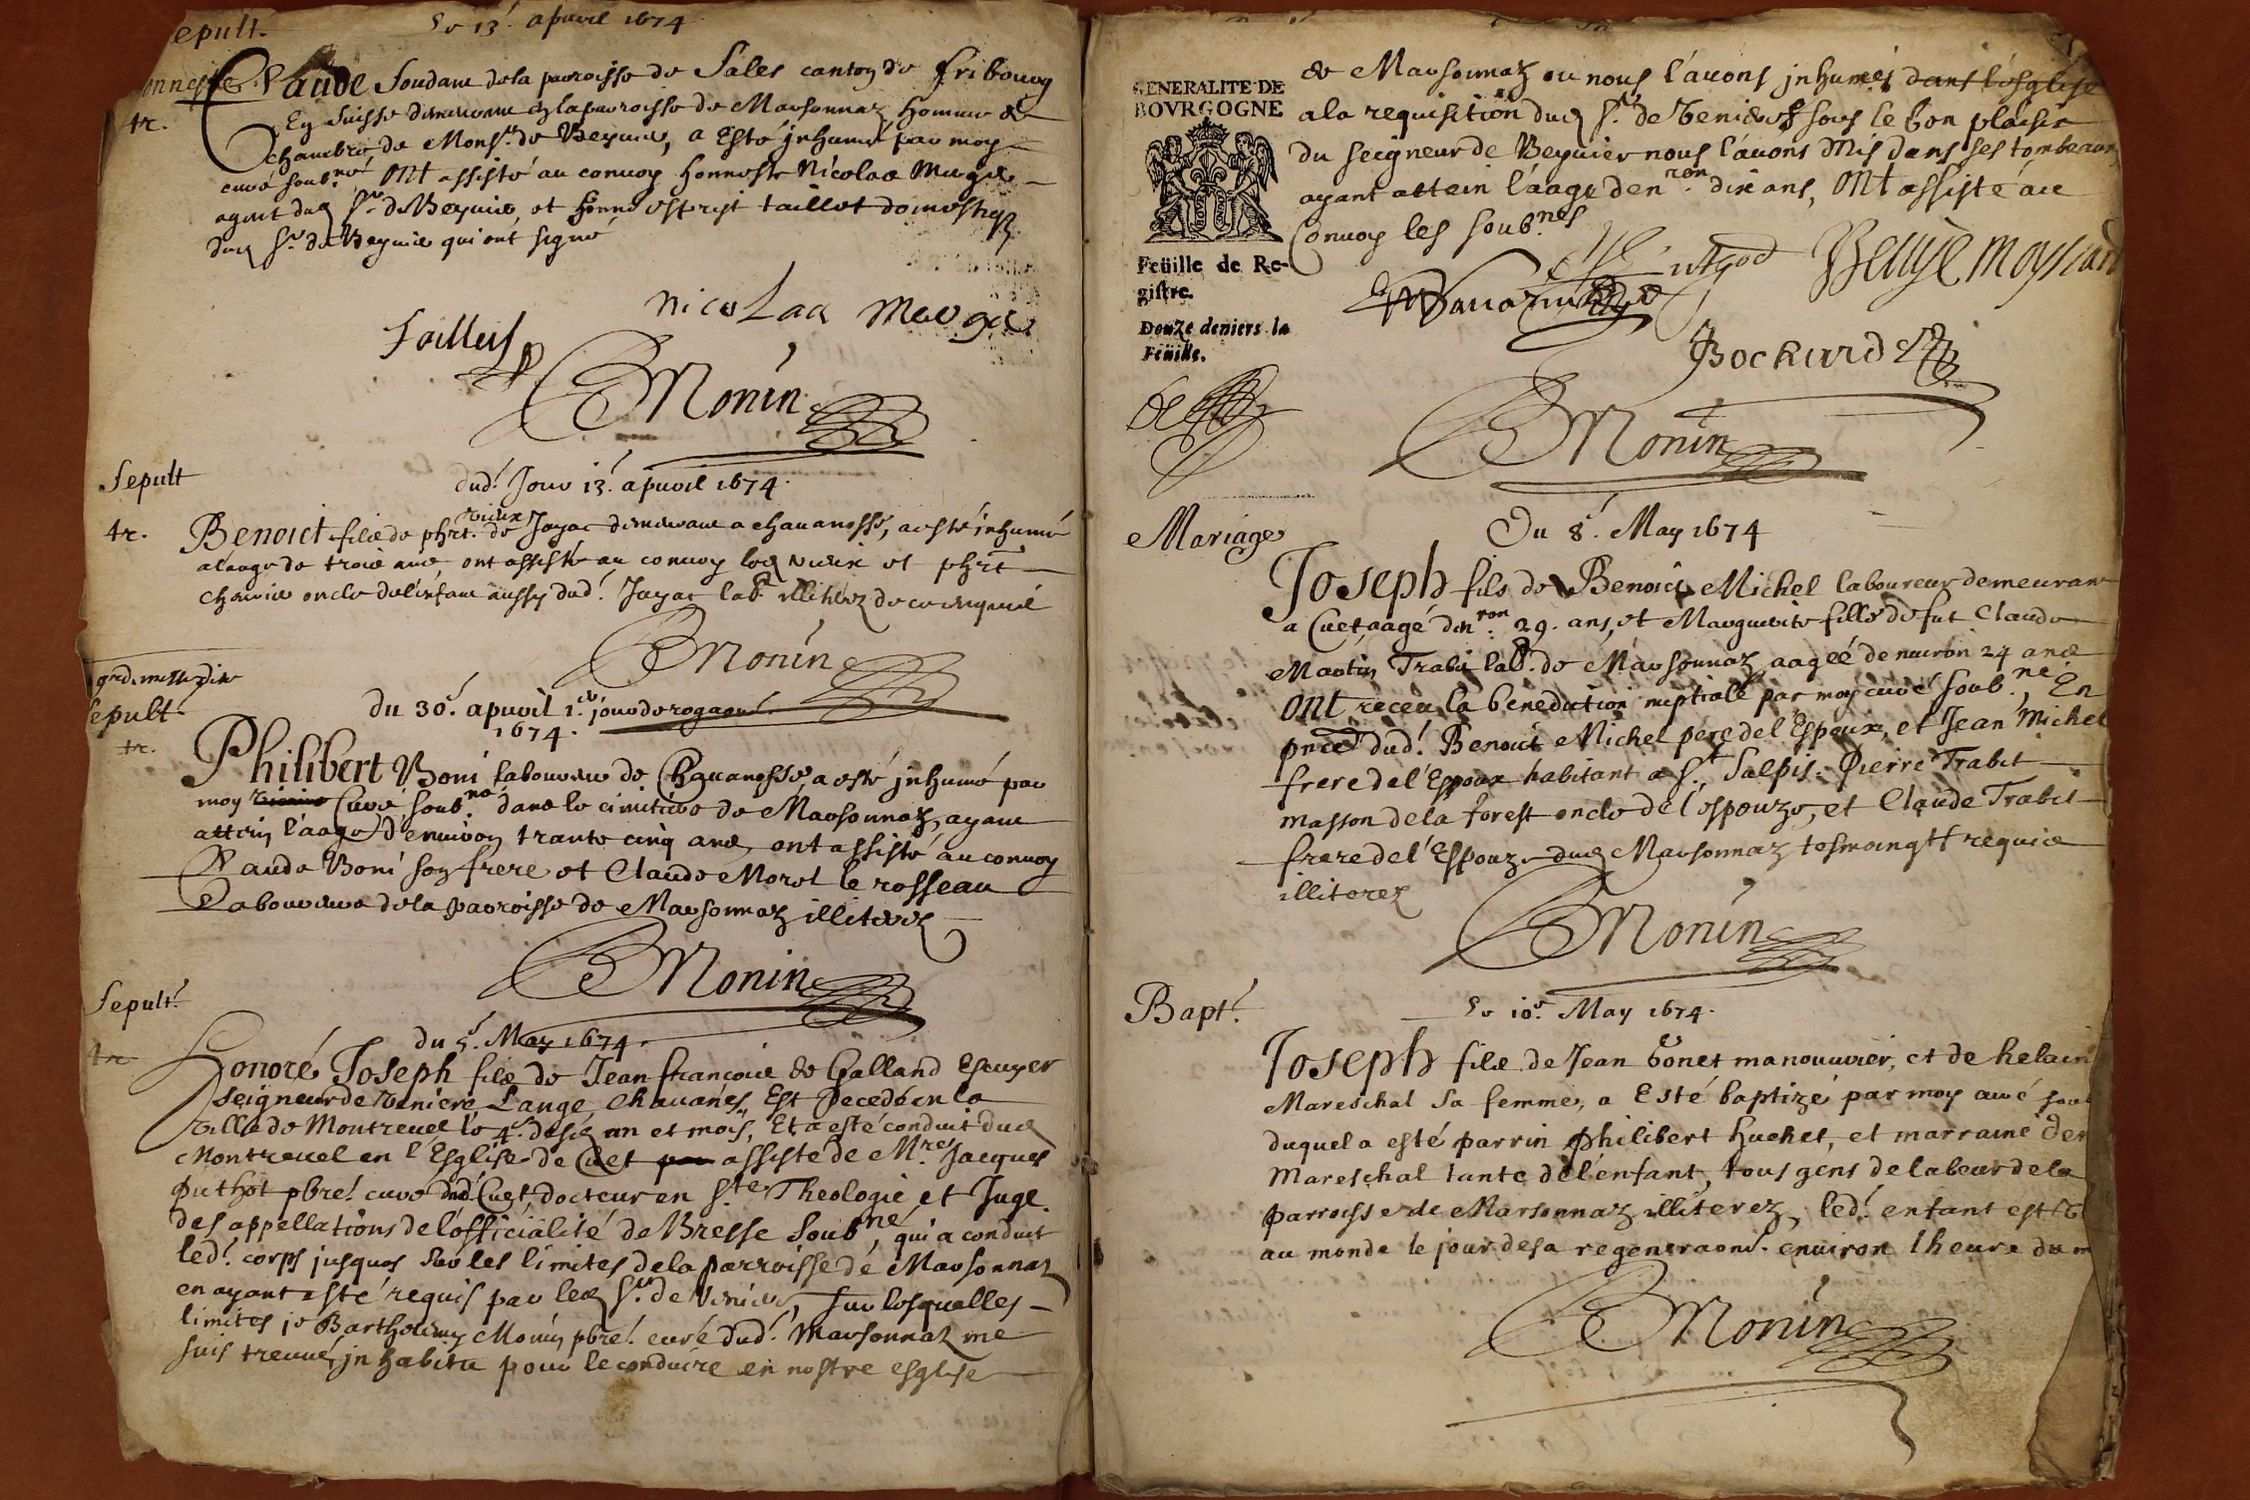 Sepult.
Le 13.e apuril 1674
honneste Claude Soudane de la parroisse de Sales canton de fribourg
tr.
En Suisse demeurant en la parroisse de Marsonnaz, homme de
chambre de Mons.r de Beyuier, a Esté jnhumé par moy
curé soub.né ont assisté au conuoy honneste Nicolas
agent dud S.r de Beyuier, et taillet domestiq
dud S.r de Beyuier qui ont signé
Nicolas
taillet
BMonin
Sepult
dud.t Jour 13.e apuril 1674.
tr.
Benoict fils de phrt. vieux de Jayac demeurant a chauanosse, a esté jnhumé
a l'aage de trois ans, ont assisté au conuoy led vieux et phrt
oncle de l'enfant aussy dud.t Jayac lab.r illiterez de ce enquis
BMonin
grd. messe dite
Sepult.
du 30.e apuril 1.er jour de rogaons
1674.
tr.
Philibert Boni laboureur de Chauanosse, a esté jnhumé par
moy Curé soub.né dans le cimitiere de Marsonnaz, ayant
attein l'aage d'enuiron trante cinq ans, ont assisté au conuoy
Claude Boni son frere et Claude Morel le rosseau
Laboureurs de la parroisse de Marsonnaz illiterez
BMonin
Sepult.
du 5.e May 1674.
tr
Honoré Joseph fils de Jean françois de Galland Escuyer
seigneur de Veniere, Lange, Chauanes, Est Decedé en la
ville de Montreuel le 4.e desd an et mois, Et a esté conduit dud
Montreuel en l'Esglise de Cuet par assisté de M.res Jacques
Puthot pbre. curé dud.t Cuet docteur en S.te Theologie et Juge
des appellations de l'officialité de Bresse soub.né, qui a conduit
led.t corps jusques sur les limites de la parroisse de Marsonnaz
en ayant esté requis par led S.r de Veniere, sur lesquelles
limites je Barthelemy Monin pbre. curé dud.t Marsonnaz me
suis treuué jn habitu pour le conduire en nostre esglise
GENERALITE DE
BOVRGOGNE
Feüille de Re-
gistre.
Douze deniers la
Feüille.
de Marsonnaz ou nous l'auons jnhumé dans l'esglise
a la requisition dud S.r de Veniere sous le bon plaisir
du seigneur de Beyuier nous l'auons Mis dans ses tombeaux
ayant attein l'aage den.ron dix ans, ont assisté au
Conuoy les soub.nés
Bochard
BMonin
Mariage
Du 8.e May 1674
Joseph fils de Benoict Michel laboureur demeurant
a Cuet aagé den.ron 29. ans, et Marguerite fille de fut Claude
Martin Trabit lab.r de Marsonnaz aagéé denuiron 24 ans
ont receu la benediction nuptiale par moy curé soub.né, En
pnce dud.t Benoict Michel pere de l'Espoux, et Jean Michel
frere de l'Espoux habitant a S.t Sulpis. Pierre Trabit
masson de la forest oncle de l'espouze, et Claude Trabit
frere de l'Espouze dud Marsonnaz tesmoingtz requis
illiterez
BMonin
Bapt.
Le 10.e May 1674.
Joseph fils de Jean bonet manouurier, et de helain
Mareschal sa femme, a Esté baptizé par moy curé sou
duquel a esté parrin Philibert huchet, et marraine
Mareschal tante de l'enfant, tous gens de labeur de la
parroisse de Marsonnaz illiterez, led.t enfant est
au monde le jour de sa regeneraons. enuiron l heure de
BMonin